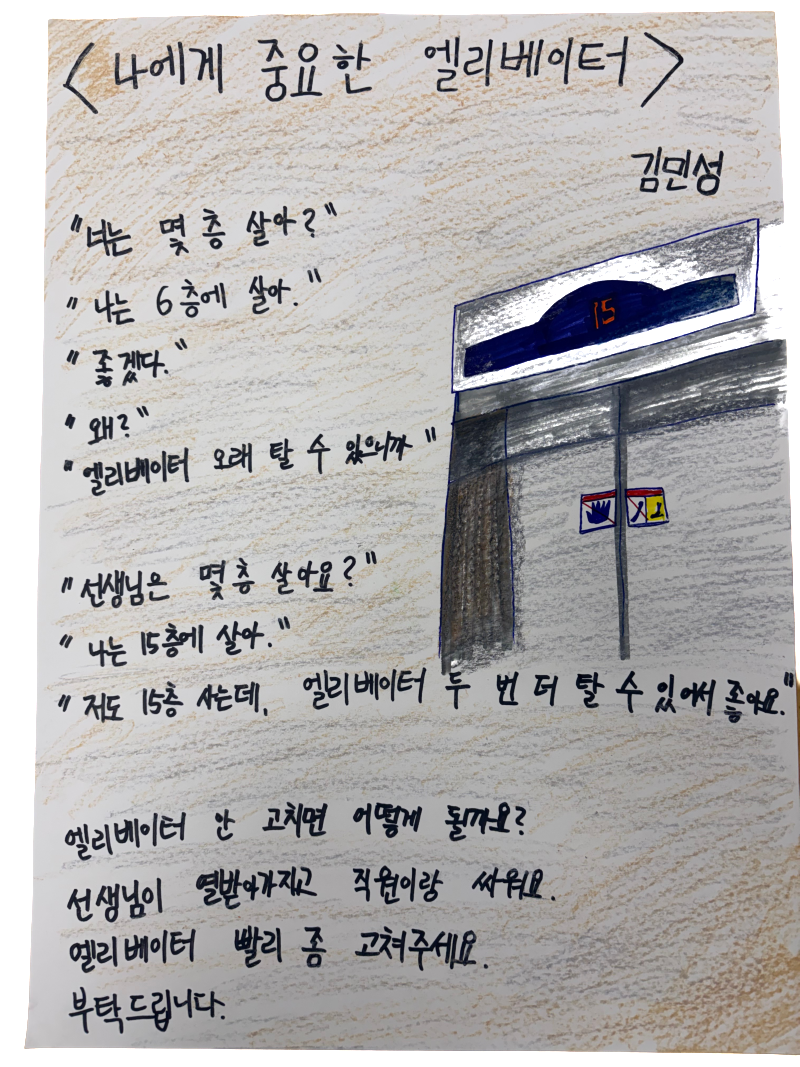 <나에게 중요한 엘리베이터>
김민성
"너는 몇 층 살아?"
"나는 6층에 살아."
"좋겠다."
"왜?"
"엘리베이터 오래 탈 수 있으니까"
15
"선생님은 몇 층 살아요?"
"나는 15층에 살아."
"저도 15층 사는데, 엘리베이터 두 번 더 탈 수 있어서 좋아요."
엘리베이터 안 고치면 어떻게 될까요?
선생님이 열받아가지고 직원이랑 싸워요.
엘리베이터 빨리 좀 고쳐주세요.
부탁드립니다.